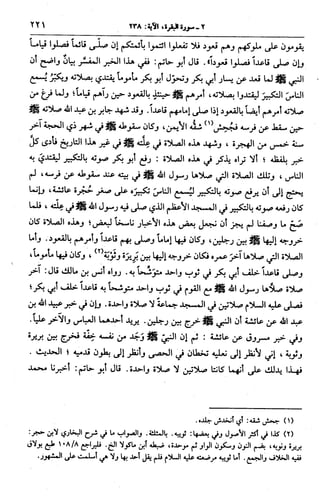 ٢ - سورة البقرة، الآية: ٢٣٨ ٢٢١
يقومون على ملوكهم وهم قعود فلا تفعلوا ائتموا بأئمتكم إن صلّى قائماً فصلوا قياماً
وإن صلى قاعداً فصلوا قعوداً. قال أبو حاتم: ففي هذا الخبر المفسّر بيانٌ واضح أن
النبيّ ﷺ لما قعد عن يسار أبي بكر وتحوّل أبو بكر مأموماً يقتدي بصلاته ويكبّر يُسمع
الناسَ التكبير ليقتدوا بصلاته، أمرهم ﷺ حينئذٍ بالقعود حين رآهم قياماً؛ ولما فرغ من
صلاته أمرهم أيضاً بالقعود إذا صلى إمامهم قاعداً. وقد شهد جابر بن عبد الله صلاته ﷺ
حين سقط عن فرسه فجُحش(١) شقّه الأيمن، وكان سقوطه ﷺ في شهر ذي الحجة آخر
سنة خمس من الهجرة، وشهد هذه الصلاة في علته ﷺ في غير هذا التاريخ فأدى كلّ
خبر بلفظه؛ ألا تراه يذكر في هذه الصلاة: رفع أبو بكر صوته بالتكبير ليقتدي به
الناس، وتلك الصلاة التي صلاها رسول الله ﷺ في بيته عند سقوطه عن فرسه، لم
يحتج إلى أن يرفع صوته بالتكبير ليُسمع الناسَ تكبيرَه على صغر حُجرة عائشة، وإنما
كان رفعه صوته بالتكبير في المسجد الأعظم الذي صلى فيه رسول الله ﷺ في علته، فلما
صحّ ما وصفنا لم يجز أن نجعل بعض هذه الأخبار ناسخاً لبعض؛ وهذه الصلاة كان
خروجه إليها ﷺ بين رجلين، وكان فيها إماماً وصلى بهم قاعداً وأمرهم بالقعود. وأما
الصلاة التي صلاها آخر عمره فكان خروجه إليها بين بَرِيرة وثوبة(٢)، وكان فيها مأموماً،
وصلى قاعداً خلف أبي بكر في ثوب واحد متوشّحاً به. رواه أنس بن مالك قال: آخر
صلاة صلاها رسول الله ﷺ مع القوم في ثوب واحد متوشحاً به قاعداً خلف أبي بكر؛
فصلى عليه السلام صلاتين في المسجد جماعة لا صلاة واحدة. وإن في خبر عبيد الله بن
عبد الله عن عائشة أن النبي ﷺ خرج بين رجلين. يريد أحدهما العباس والآخر علياً.
وفي خبر مسروق عن عائشة: ثم إن النبيّ ﷺ وَجَد من نفسه خِفّة فخرج بين بريرة
وثوبة، إني لأنظر إلى نعليه تخطان في الحصى وأنظر إلى بطون قدميه؛ الحديث.
فهذا يدلك على أنهما كانتا صلاتين لا صلاة واحدة. قال أبو حاتم: أخبرنا محمد
(١) جحش شقه: أي انخدش جلده.
(٢) كذا في أكثر الأصول وفي بعضها: ثويبة. بالمثلثة. والصواب ما في شرح البخاري لابن حجر:
بريرة ونوبة، بضم النون وسكون الواو ثم موحدة، ضبطه ابن ماكولا الخ. فليراجع ١٠٨/٨ طبع بولاق
فيه الخلاف والجمع. أما ثويبة مرضعته عليه السلام فلم يقل أحد بها ولا هي أسلمت على المشهور.